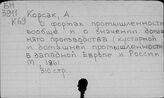 БН
3911
К69
Корсак, А.
О формах промышленности
вообще и о значении домаш
няго производства (кустарной
и домашней промышленности
в западной Европе и России
М, 1861.
310 стр.